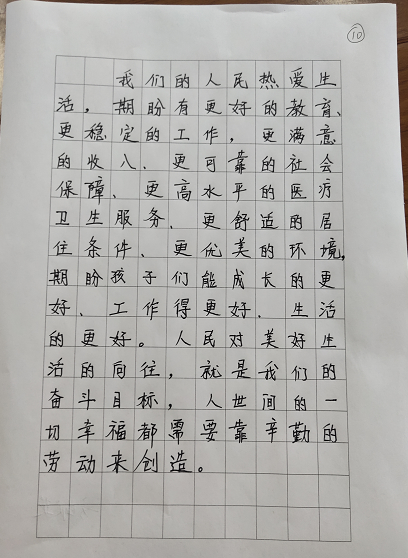 10
我们的人民热爱生
活，期盼有更好的教育、
更稳定的工作，更满意
的收入、更可靠的社会
保障、更高水平的医疗
卫生服务、更舒适的居
住条件、更优美的环境，
期盼孩子们能成长的更
好、工作得更好、生活
的更好。人民对美好生
活的向往，就是我们的
奋斗目标，人世间的一
切幸福都需要靠辛勤的
劳动来创造。